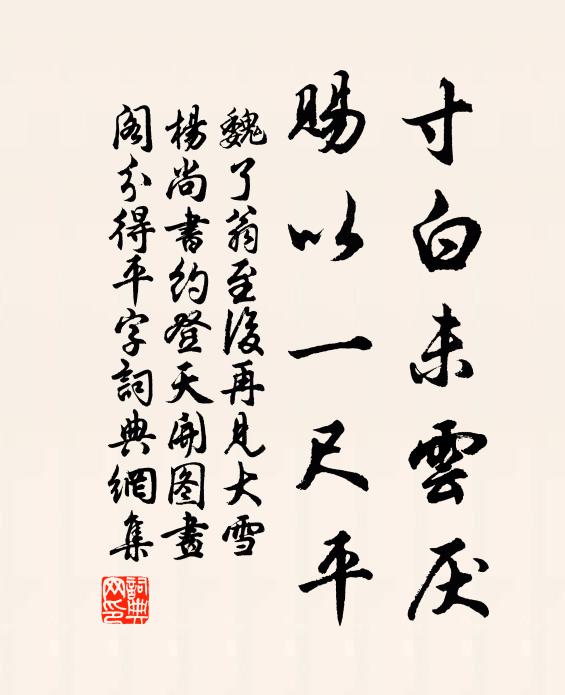 寸白未雲厌
賜以一尺平
魏了翁至後再見大雪
楊尚書約登天開图畫
阁分得平字詞典網集
詞典网印